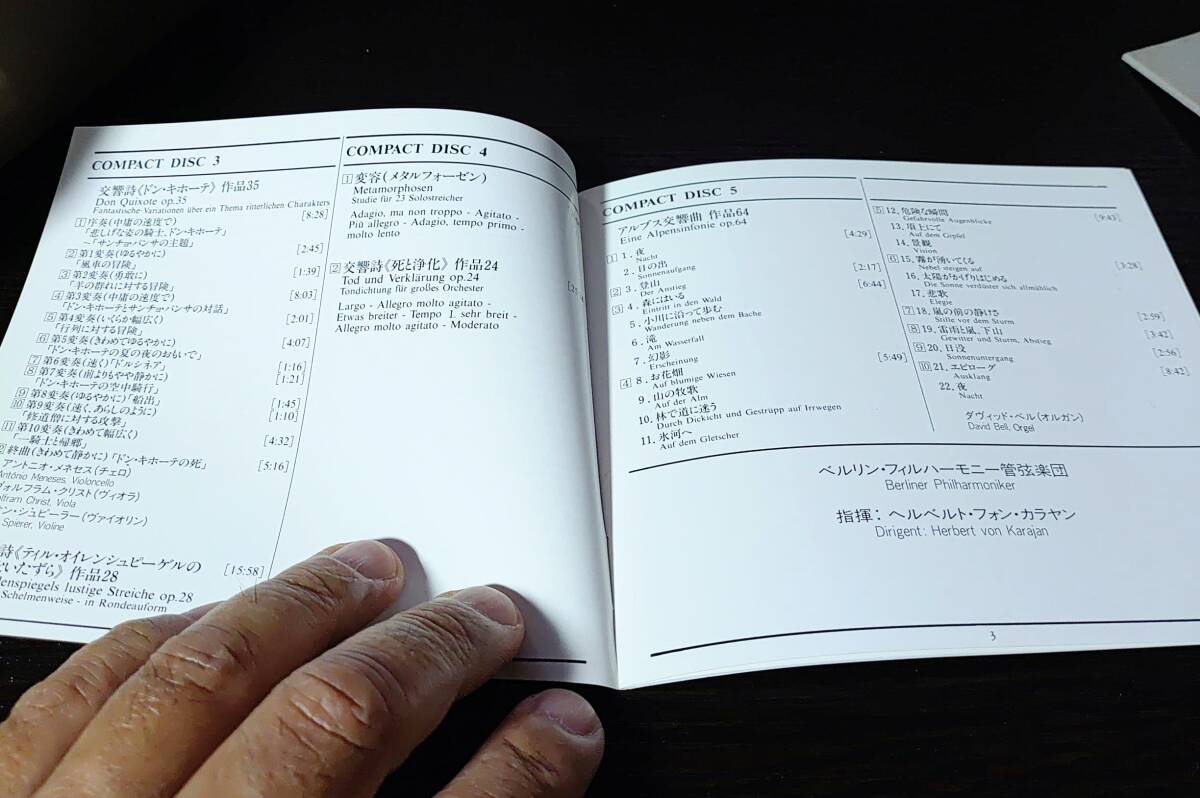 COMPACT DISC 3
交響詩《ドン・キホーテ》作品35
Don Quixote op.35
Fantastische Variationen über ein Thema ritterlichen Charakters
[8:28]
1 序奏(中庸の速度で)
「悲しげな姿の騎士、ドン・キホーテ」
〜「サンチョ・パンサの主題」
2 第1変奏(ゆるやかに) [2:45]
「風車の冒険」
3 第2変奏(勇敢に) [1:39]
「羊の群れに対する冒険」
4 第3変奏(中庸の速度で) [8:03]
「ドン・キホーテとサンチョ・パンサの対話」
5 第4変奏(いくらか幅広く) [2:01]
「行列に対する冒険」
6 第5変奏(きわめてゆるやかに) [4:07]
「ドン・キホーテの夏の夜のおもいで」
7 第6変奏(速く)「ドルシネア」 [1:16]
8 第7変奏(前よりもやや静かに) [1:21]
「ドン・キホーテの空中騎行」
9 第8変奏(ゆるやかに)「船出」 [1:45]
10 第9変奏(速く、あらしのように) [1:10]
「修道僧に対する攻撃」
11 第10変奏(きわめて幅広く) [4:32]
「一騎士と帰郷」
2 終曲(きわめて静かに)「ドン・キホーテの死」 [5:16]
アントニオ・メネセス(チェロ)
António Meneses, Violoncello
ヴォルフラム・クリスト(ヴィオラ)
lfram Christ, Viola
ン・シュピーラー(ヴァイオリン)
Spierer, Violine
詩《ティル・オイレンシュピーゲルの [15:58]
いたずら》作品28
enspiegels lustige Streiche op.28
Schelmenweise - in Rondeauform
COMPACT DISC 4
1 変容(メタルフォーゼン)
Metamorphosen
Studie für 23 Solostreicher
Adagio, ma non troppo - Agitato -
Più allegro - Adagio, tempo primo -
molto lento
2 交響詩《死と浄化》作品24
Tod und Verklärung op.24
Tondichtung für großes Orchester
Largo - Allegro molto agitato -
Etwas breiter - Tempo I. sehr breit -
Allegro molto agitato - Moderato
COMPACT DISC 5
アルプス交響曲 作品64
Eine Alpensinfonie op.64
1 1. 夜 [4:29]
Nacht
2. 日の出
Sonnenaufgang
2 3. 登山 [2:17]
Der Anstieg
3 4. 森にはいる [6:44]
Eintritt in den Wald
5. 小川に沿って歩む
Wanderung neben dem Bache
6. 滝
Am Wasserfall
7. 幻影
Erscheinung
4 8. お花畑 [5:49]
Auf blumige Wiesen
9. 山の牧歌
Auf der Alm
10. 林で道に迷う
Durch Dickicht und Gestrupp auf Irrwegen
11. 氷河へ
Auf dem Gletscher
5 12. 危険な瞬間 [9:43]
Gefahrvolle Augenblicke
13. 頂上にて
Auf dem Gipfel
14. 景観
Vision
6 15. 霧が湧いてくる [3:28]
Nebel steigen auf
16. 太陽がかげりはじめる
Die Sonne verdüstert sich allmählich
17. 悲歌
Elegie
7 18. 嵐の前の静けさ [2:59]
Stille vor dem Sturm
8 19. 雷雨と嵐、下山 [3:42]
Gewitter und Sturm, Abstieg
9 20. 日没 [2:56]
Sonnenuntergang
10 21. エピローグ [8:42]
Ausklang
22. 夜
Nacht
ダヴィッド・ベル(オルガン)
David Bell, Orgel
ベルリン・フィルハーモニー管弦楽団
Berliner Philharmoniker
指揮：ヘルベルト・フォン・カラヤン
Dirigent: Herbert von Karajan
3